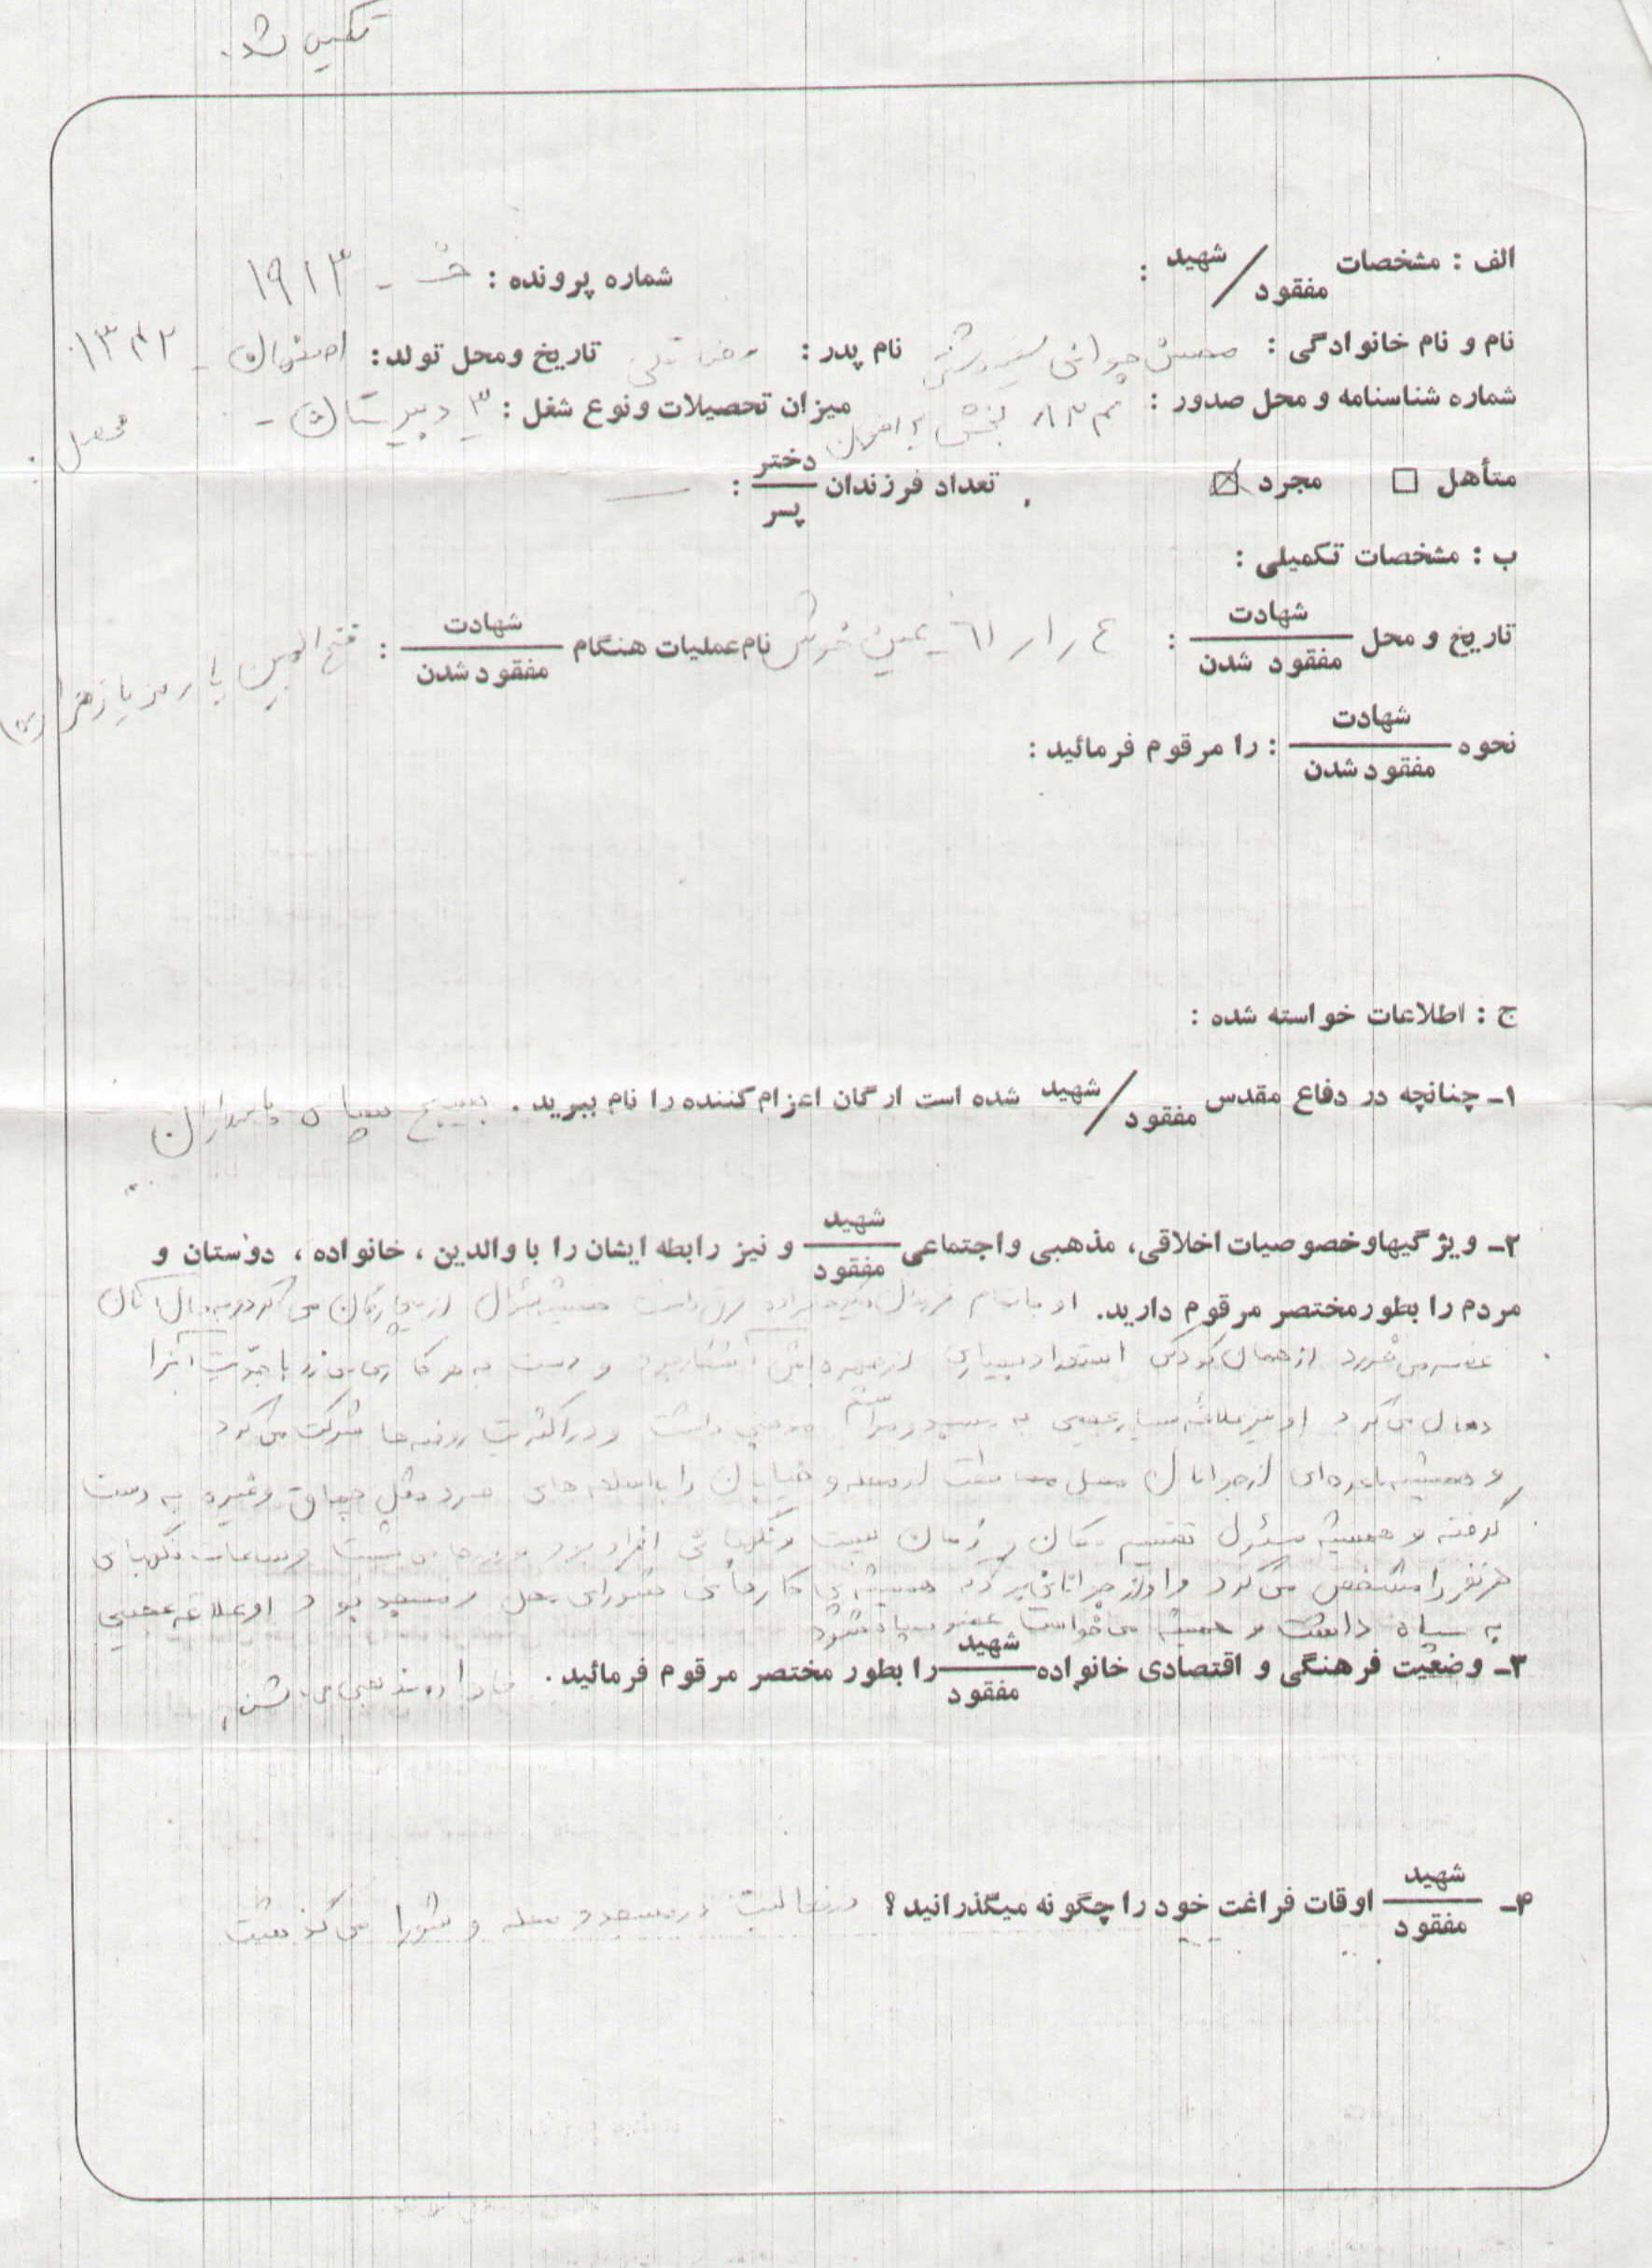 تکمیل شد.
الف : مشخصات شهید / مفقود :
شماره پرونده : خ - ۱۹۱۳
نام و نام خانوادگی : محسن جوانی نام پدر : رضا قلی تاریخ ومحل تولد : اصفهان - ۱۳۴۲
شماره شناسنامه و محل صدور : بخش ۲ اصفهان میزان تحصیلات ونوع شغل : ۳ دبیرستان - محصل .
متأهل □ مجرد ☒ تعداد فرزندان دختر / پسر : —
ب : مشخصات تکمیلی :
تاریخ و محل شهادت / مفقود شدن : ۴ ر ۱ ر ۶۱ - عین خوش نام عملیات هنگام شهادت / مفقود شدن : فتح المبین با رمز یا زهرا (س)
نحوه شهادت / مفقود شدن : را مرقوم فرمائید :
ج : اطلاعات خواسته شده :
۱ـ چنانچه در دفاع مقدس شهید / مفقود شده است ارگان اعزام کننده را نام ببرید . بسیج سپاه پاسداران
۲ـ ویژگیها و خصوصیات اخلاقی، مذهبی و اجتماعی شهید / مفقود و نیز رابطه ایشان را با والدین ، خانواده ، دوستان و
مردم را بطور مختصر مرقوم دارید. او با تمام فرق داشت همیشه سئوال از بیچارگان می کرد و به حال آنان
غصه می خورد از همان کودکی استعداد بسیاری از چهره اش آشکار بود و دست به هر کاری می زد با جدیت آنرا
دنبال می کرد او نیز علاقه بسیار عجیبی به مسجد و مراسم مذهبی داشت و در اکثریت روضه ها شرکت می کرد
و همیشه با عده ای از جوانان محل از محله و خیابان را با اسلحه های سرد مثل چماق و غیره به دست
گرفته و همیشه مسئول تقسیم مکان و زمان پست و نگهبانی افراد بود و ساعات نگهبانی
هر نفر را مشخص می کرد و او از جوانانی بود که همیشه پی کارهای شورای محل و مسجد بود و او علاقه عجیبی
به سپاه داشت و همیشه می خواست عضو سپاه شود
۳ـ وضعیت فرهنگی و اقتصادی خانواده شهید / مفقود را بطور مختصر مرقوم فرمائید . خانواده مذهبی می باشند
۴ـ شهید / مفقود اوقات فراغت خود را چگونه میگذرانید ؟ در فعالیت در مسجد و محله و شورا می گذشت